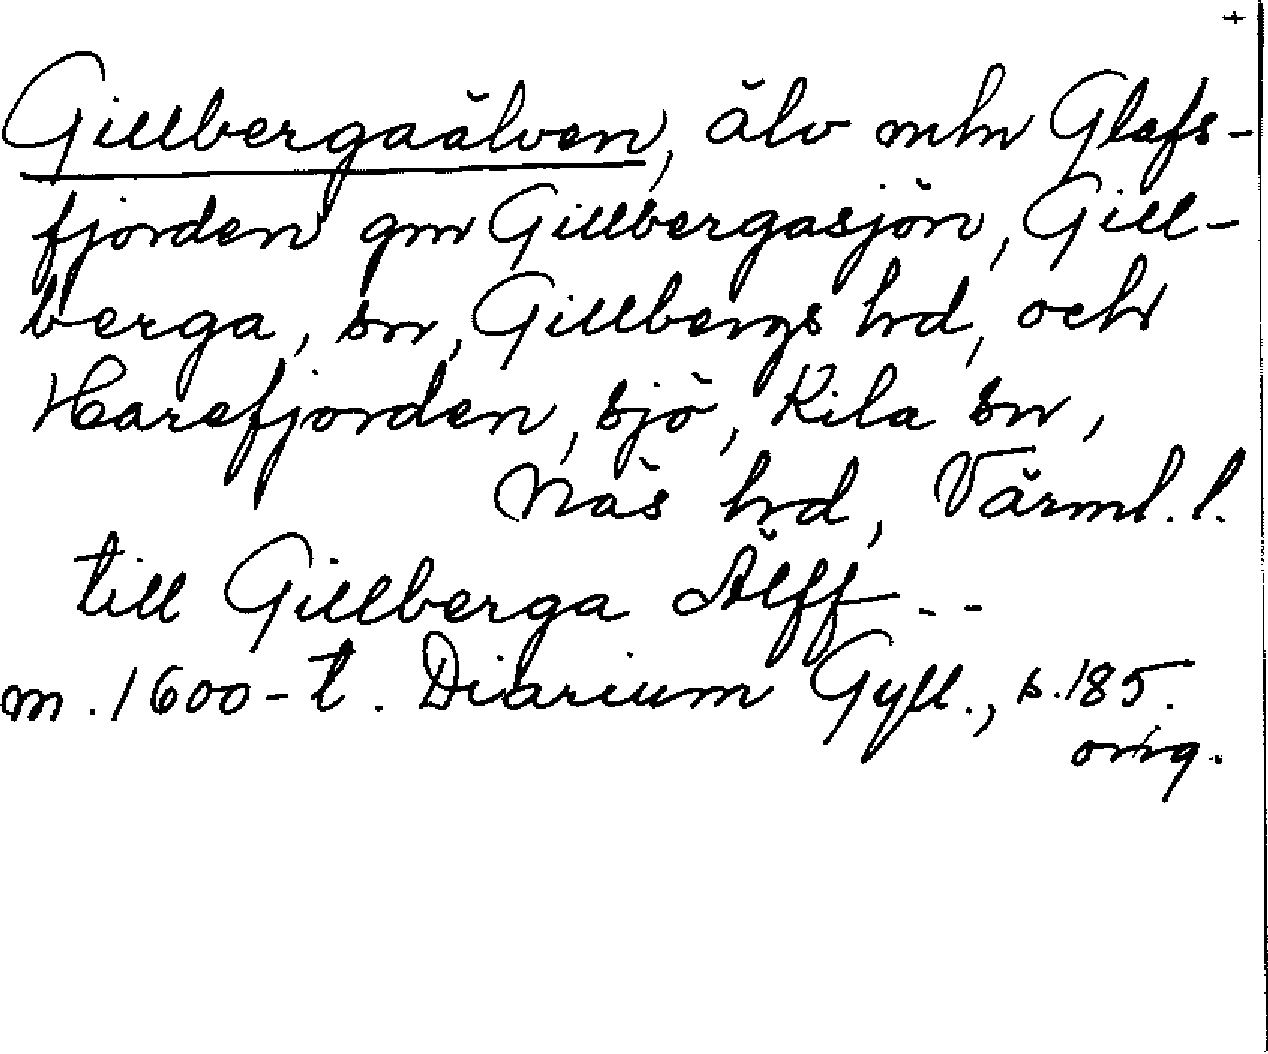 +
Gillbergaälven, älv mln Glafs-
fjorden gm Gillbergasjön, Gill-
berga, sn, Gillbergs hd, och
Harefjorden, sjö, Kila sn,
Näs hd, Värml. l.
till Gillberga Älff - -
m. 1600-t. Diarium Gyll., s. 185.
orig.